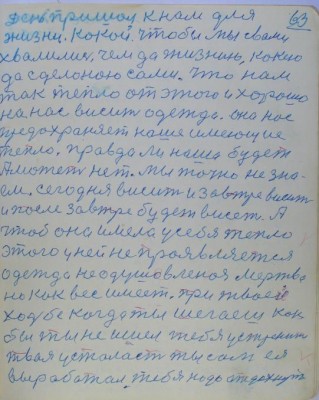 день пришол к нам для 63
жизни. Какой, чтобы мы сваи
хвалились, чем да жизнию, какою
да сделоною сами. Что нам
так тепло от этого и хорошо
на нас висит одежда. она нас
предохраняет наше имеющие
тепло. правда ли наша будет
А может нет. мы тожо не зна-
ем. сегодня висит и завтре висит
и после завтре будет висет. А
чтоб она имела у себя тепло
этого у ней не праявляется
одежда неодушовленая мертва
но как вес имеет. при твоей
ходьбе когда ты шегаеш как
бы ты не шиел тебя устрянит
твая усталаст ты сам ея
выработал, тебя надо атдохнут